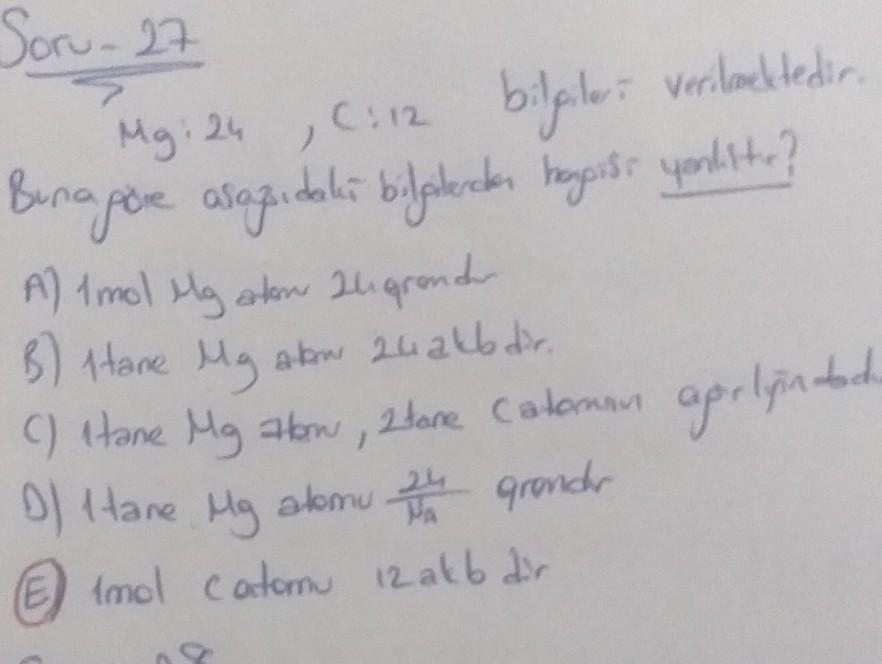 Soru - 27
Mg: 24 , C: 12 bilgileri verilmektedir.
Buna göre aşağıdaki bilgilerden hangisi yanlıştır?
A) 1mol Mg atomu 24 gramdır
B) 1tane Mg atomu 24 akb dir.
C) 1tane Mg atomu, 2tane C atomunun ağırlığındadır
D) 1tane Mg atomu 24/NA gramdır
E) 1mol C atomu 12 akb dir